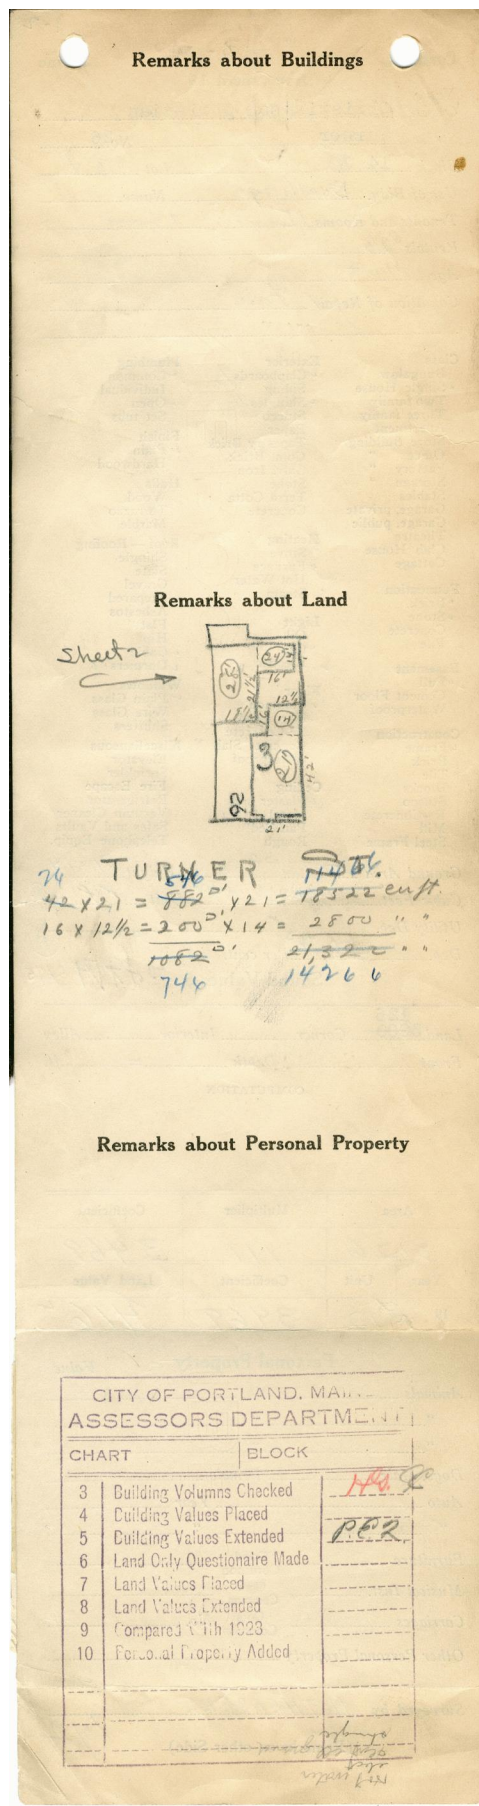 Remarks about Buildings
Remarks about Land
Sheet 2
24
28
16'
21 1/2
12 1/2
18 1/2
16
14
3
21
42'
26
21'
TURNER ST.
26 546 11466
42 x 21 = 882□' x 21 = 18522 cu ft.
16 x 12 1/2 = 200□' x 14 = 2800 " "
1082□' 21,322 " "
746 14266
Remarks about Personal Property
CITY OF PORTLAND, MAINE
ASSESSORS DEPARTMENT
CHART BLOCK
3 Building Volumns Checked
4 Building Values Placed
5 Building Values Extended P.E.2.
6 Land Only Questionaire Made
7 Land Values Placed
8 Land Values Extended
9 Compared With 1923
10 Personal Property Added